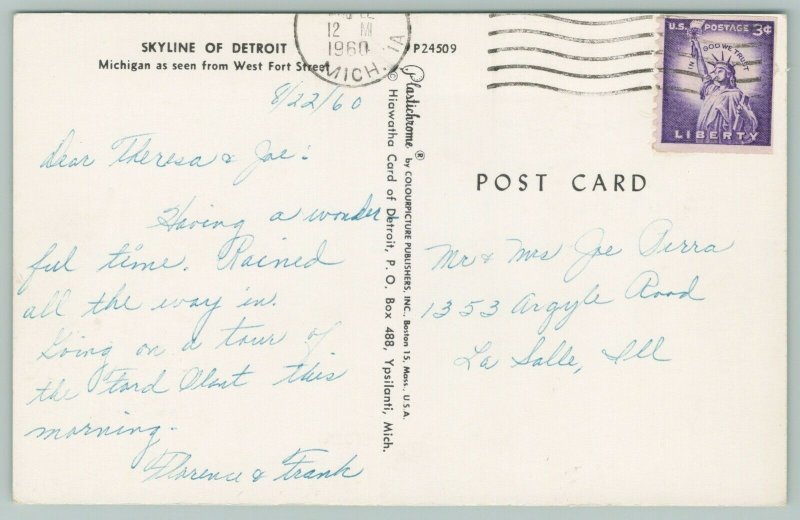 SKYLINE OF DETROIT
Michigan as seen from West Fort Street
P24509
12 M
1960
MICH. 1A
U.S. POSTAGE 3¢
IN GOD WE TRUST
LIBERTY
8/22/60
Dear Theresa & Joe:
Having a wonder
ful time. Rained
all the way in.
Going on a tour of
the Ford Plant this
morning.
Florence & Frank
Plastichrome® by COLOURPICTURE PUBLISHERS, INC., Boston 15, Mass. U.S.A.
© Hiawatha Card of Detroit, P. O. Box 488, Ypsilanti, Mich.
POST CARD
Mr & Mrs Joe
1353 Argyle Road
La Salle, Ill